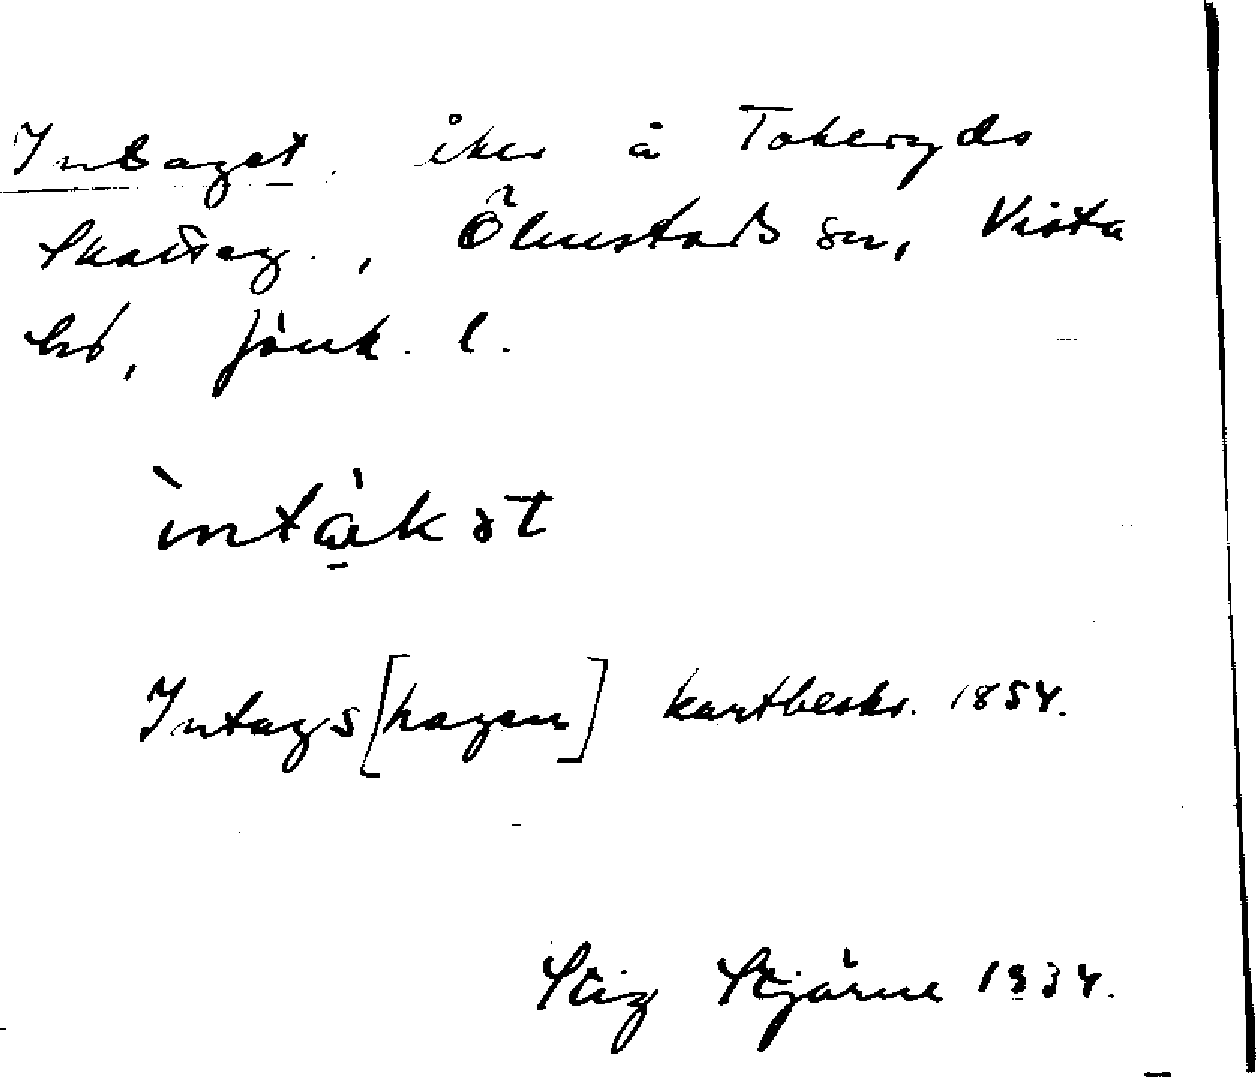 Intaget, åker å Tokeryds
Skatteg., Ölmstads sn, Vista
hd, Jönk. l.
ìntàkət
Intags[hagen] kartbeskr. 1854.
Stig Stjärne 1934.